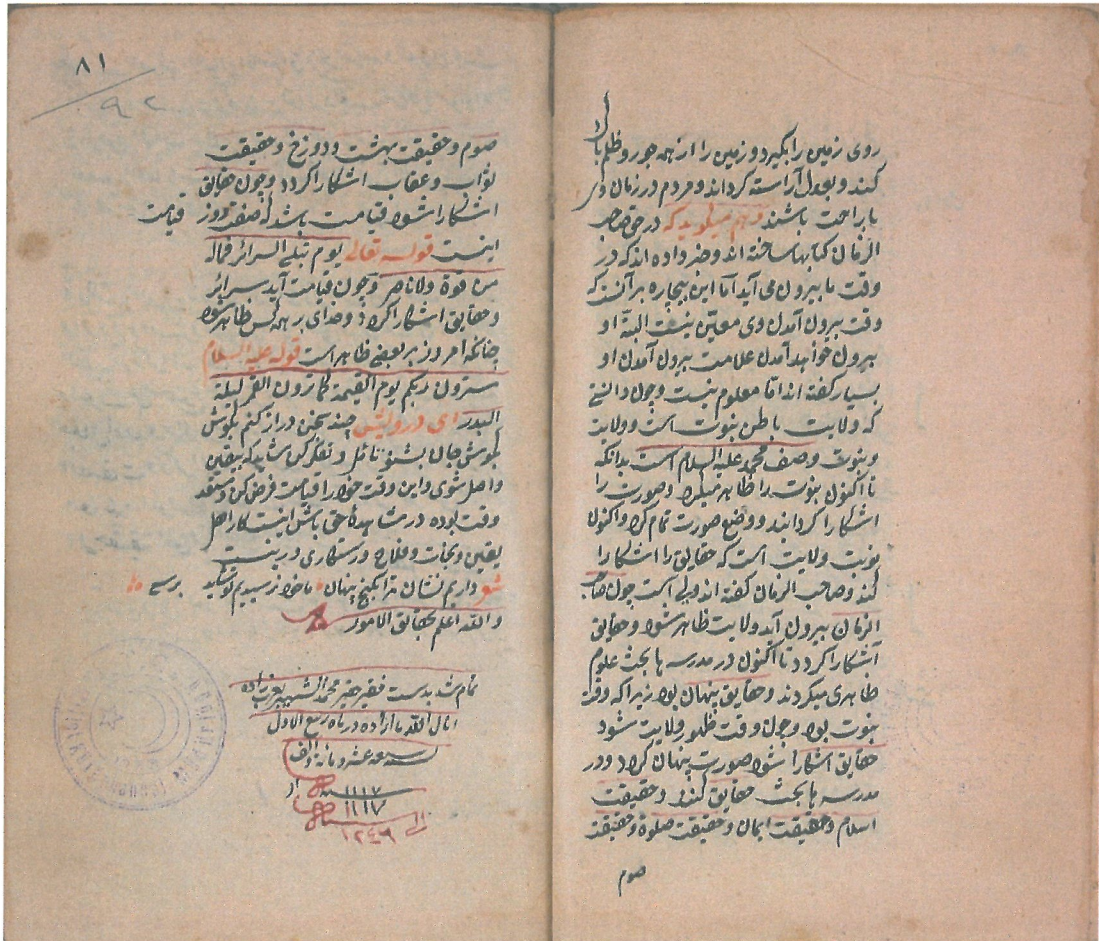 روی زمین را بگیرد و زمین را از همه جور و ظلم پاک
کند و بعدل آراسته کرداند و مردم در زمان وی
با راحت باشند میکوید که در حق صاحب
الزمان کتابها ساخته اند و خبر داده اند که در
وقت ما بیرون می آید اما این بیچاره بر آنست که
وقت بیرون آمدن وی معین نیست البتة او
بیرون خواهد آمدن علامت بیرون آمدن او
بسیار کفته اند اما معلوم نیست و چون دانستی
که ولایت باطن نبوت است و ولایت
و نبوت وصف محمد علیه السلام است بدانکه
تا اکنون نبوت را ظاهر میکرد و صورت را
اشکارا کردانند و وضع صورت تمام کرد و اکنون
نوبت ولایت است که حقایق را اشکارا
کند و صاحب الزمان کفته اند ولی است چون صاحب
الزمان بیرون آید ولایت ظاهر شود و حقایق
آشکارا کردد تا اکنون در مدرسه ها بحث علوم
ظاهری میکردند و حقایق پنهان بود زیرا که وقت
نبوت بود و چون وقت ظهور ولایت شود
حقایق اشکارا شود صورت پنهان کردد و در
مدرسه ها بحث حقایق کنند و حقیقت
اسلام و حقیقت ایمان و حقیقت صلوة و حقیقت
صوم
٨١
٩٢
صوم و حقیقت بهشت و دوزخ و حقیقت
ثواب و عقاب اشکارا کردد و چون حقایق
اشکارا شود قیامت باشد که صفت روز قیامت
اینست قوله تعالی یوم تبلی السرائر فماله
من قوة ولا ناصر و چون قیامت آید سرائر
و حقایق اشکارا کردد و خدای بر همه کس ظاهر شود
چنانکه امروز بر بعضی ظاهر است قوله علیه السلام
سترون ربکم یوم القیمة کما ترون القمر لیلة
البدر ای درویش چند سخن دراز کنم بکوش
بکوش جان بشنو تأمل و تفکر کن شاید که بیقین
واصل شوی و این وقت خود را قیامت فرض کن و مستعد
وقت بوده در مشاهدهٔ حق باش اینست کار اهل
یقین و نجات و فلاح و رستکاری درینست
شعر داریم نشان ترا بکنج پنهان ما خود نرسیدیم تو شاید برسی
والله اعلم بحقایق الامور
تمام شد بدست فقیر حقیر محمد الشهیر بعرب زاده
انال الله ما اراده در ماه ربیع الاول
سنه سبعه عشر و مائة و الف
سنه ١١١٧ از
١١١٧
الی سنه ١٢٤٦